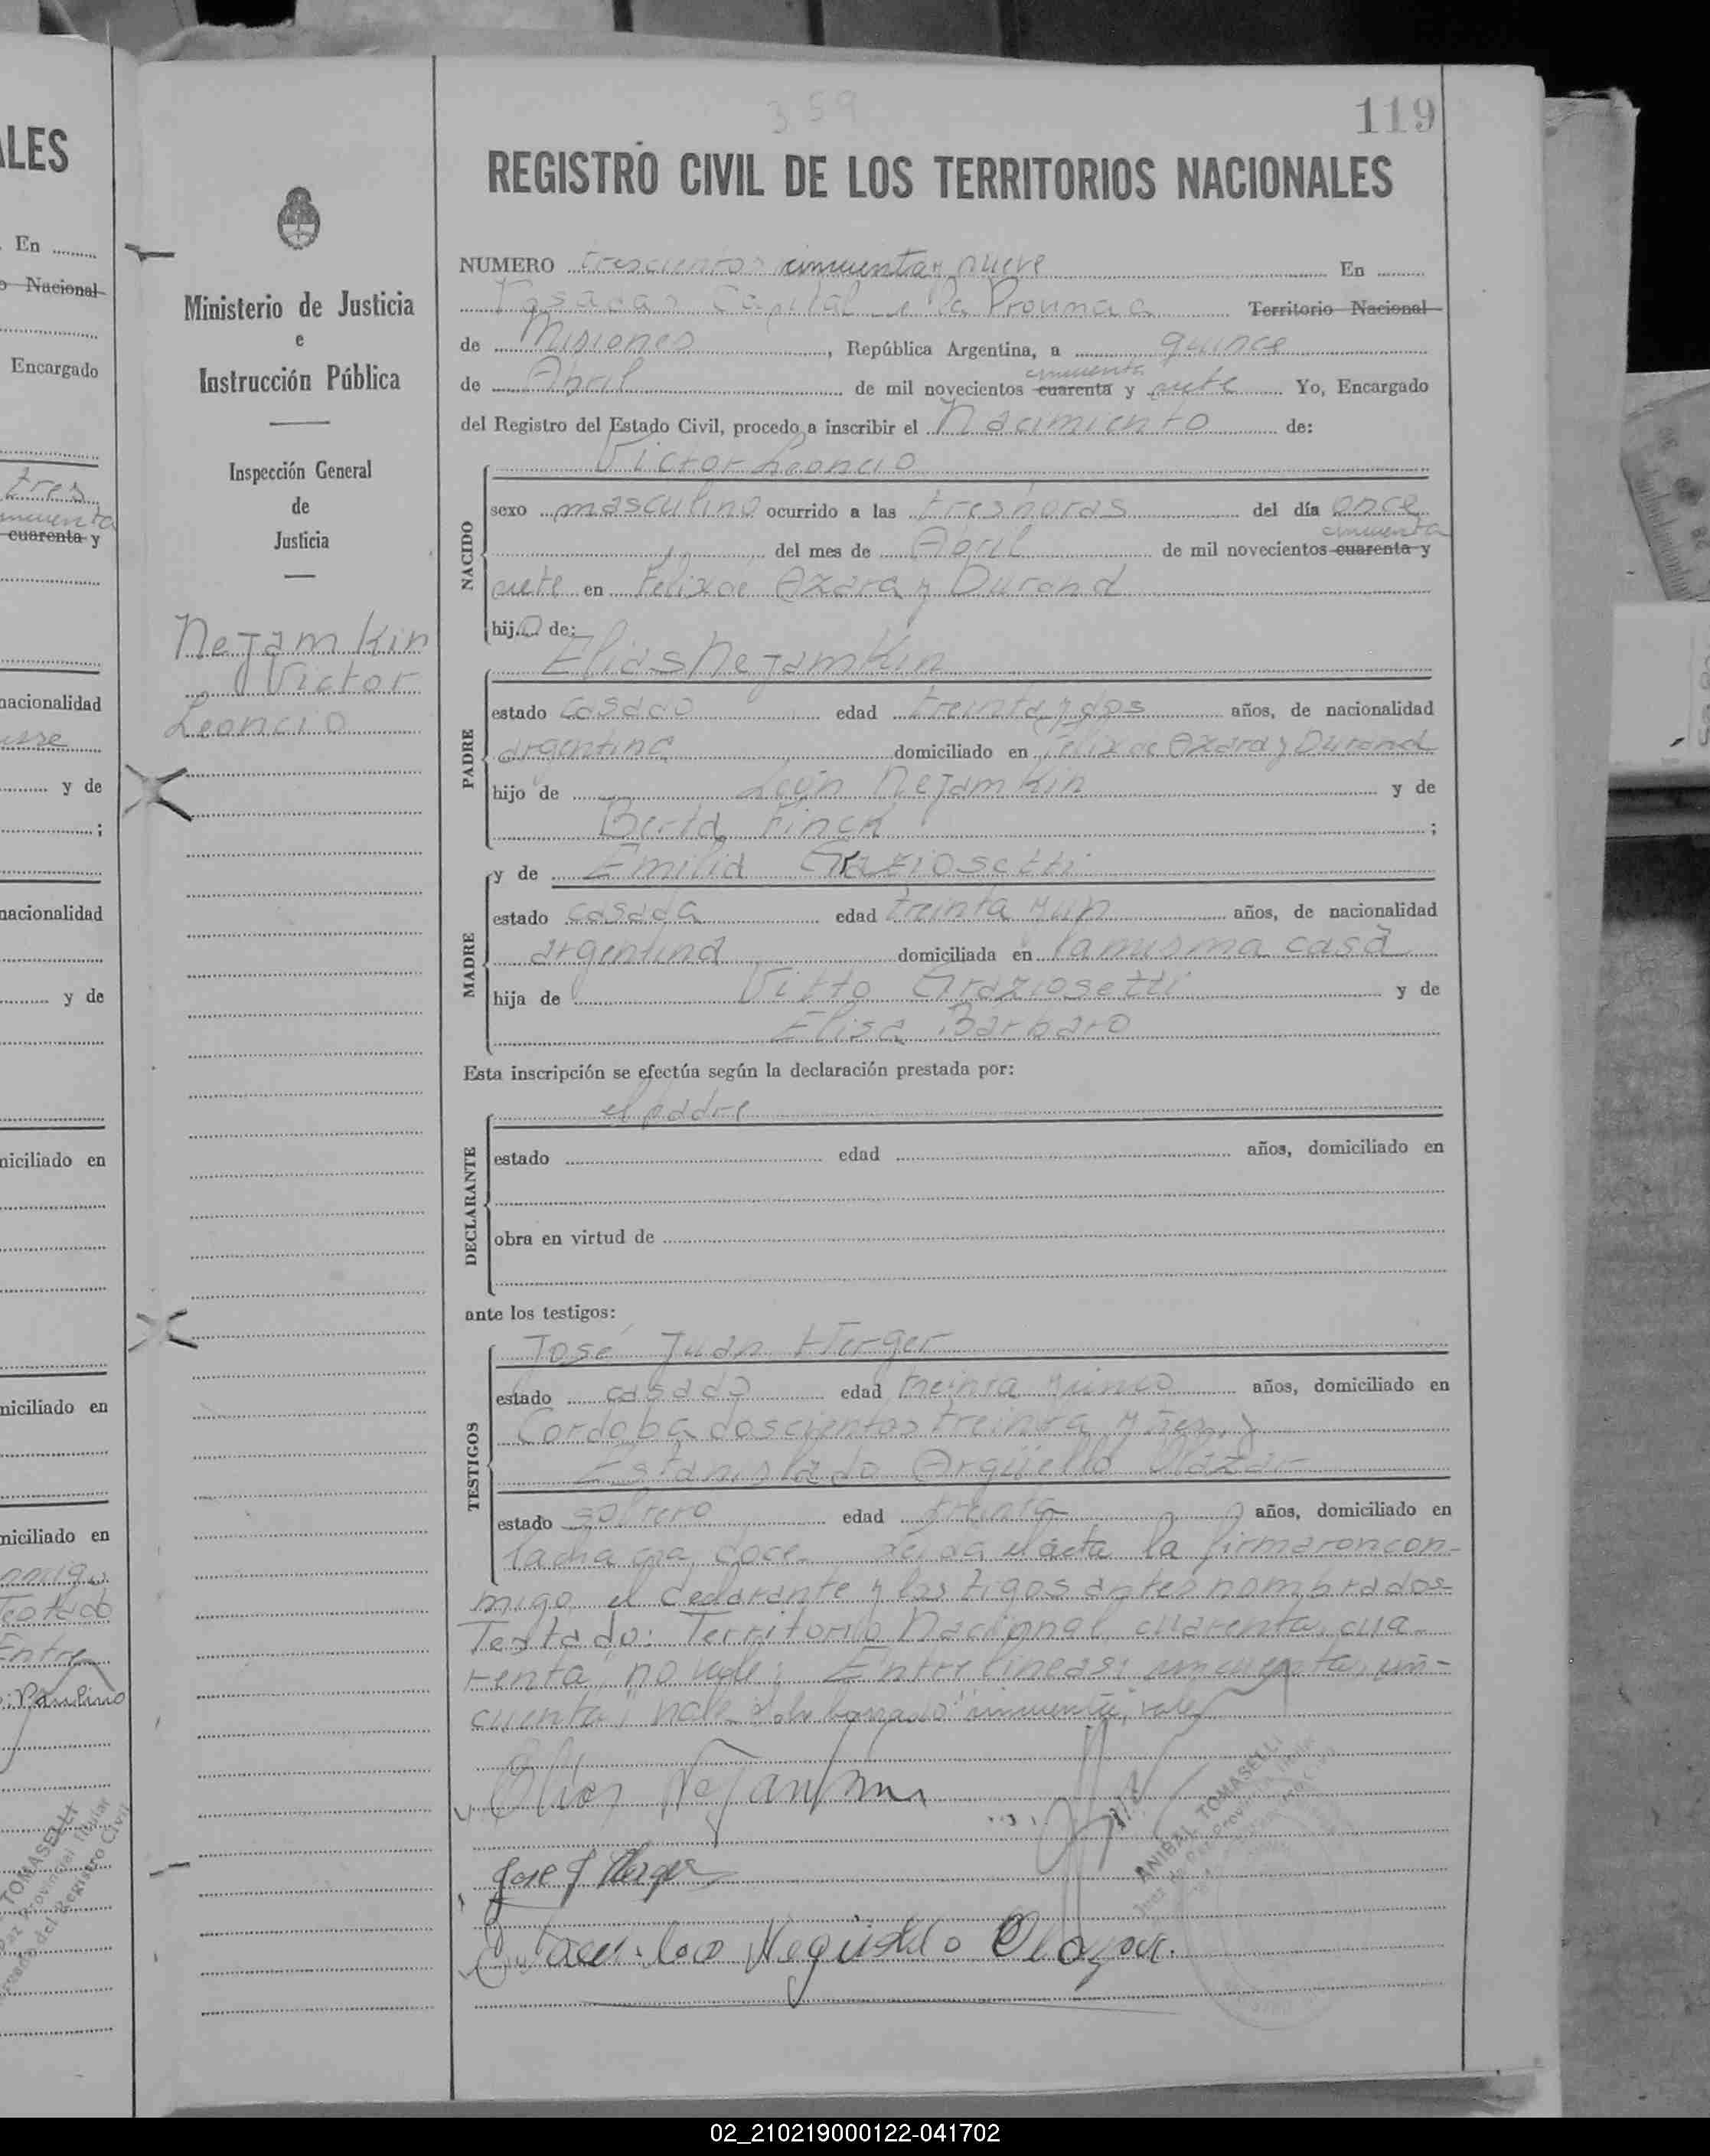 359
119
REGISTRO CIVIL DE LOS TERRITORIOS NACIONALES
NUMERO trescientos cincuenta y nueve En
Posadas Capital de la Provincia Territorio Nacional
de Misiones, República Argentina, a quince
cincuenta
de Abril de mil novecientos cuarenta y siete Yo, Encargado
del Registro del Estado Civil, procedo a inscribir el Nacimiento de:
NACIDO
Victor Leoncio
sexo masculino ocurrido a las tres horas del día once
cincuenta
del mes de Abril de mil novecientos cuarenta y
siete en Felix de Azara y Durand
hijo de:
PADRE
Elias Nejamkin
estado casado edad treinta y dos años, de nacionalidad
argentina domiciliado en Felix de Azara y Durand
hijo de León Nejamkin y de
Berta Finck ;
MADRE
y de Emilia Graziosetti
estado casada edad treinta y un años, de nacionalidad
argentina domiciliada en la misma casa
hija de Vitto Graziosetti y de
Elisa Barbaro
Esta inscripción se efectúa según la declaración prestada por:
DECLARANTE
el padre
estado edad años, domiciliado en
obra en virtud de
ante los testigos:
TESTIGOS
José Juan Herger
estado casado edad treinta y cinco años, domiciliado en
Cordoba doscientos treinta y tres y
Estanislado Argüello Olazar
estado soltero edad treinta años, domiciliado en
la chacra doce. Leida el acta la firmaron con-
migo el declarante y los tigos antes nombrados
Testado: Territorio Nacional, cuarenta, cua-
renta, no vale; Entre lineas: cincuenta, cin-
cuenta, vale. Sobre borrado "cincuenta", vale
Elias Nejamkin
Jose J Herger
Estanislao Argüello Olazar.
ANIBAL TOMASELLI
Ministerio de Justicia
e
Instrucción Pública
Inspección General
de
Justicia
Nejamkin
Victor
Leoncio
ALES
En
Nacional
Encargado
tres
cincuenta
cuarenta y
nacionalidad
y de
;
nacionalidad
y de
domiciliado en
domiciliado en
domiciliado en
Testado
Entre
Paulino
TOMASELLI
Provincial Titular
del Registro Civil
02_210219000122-041702